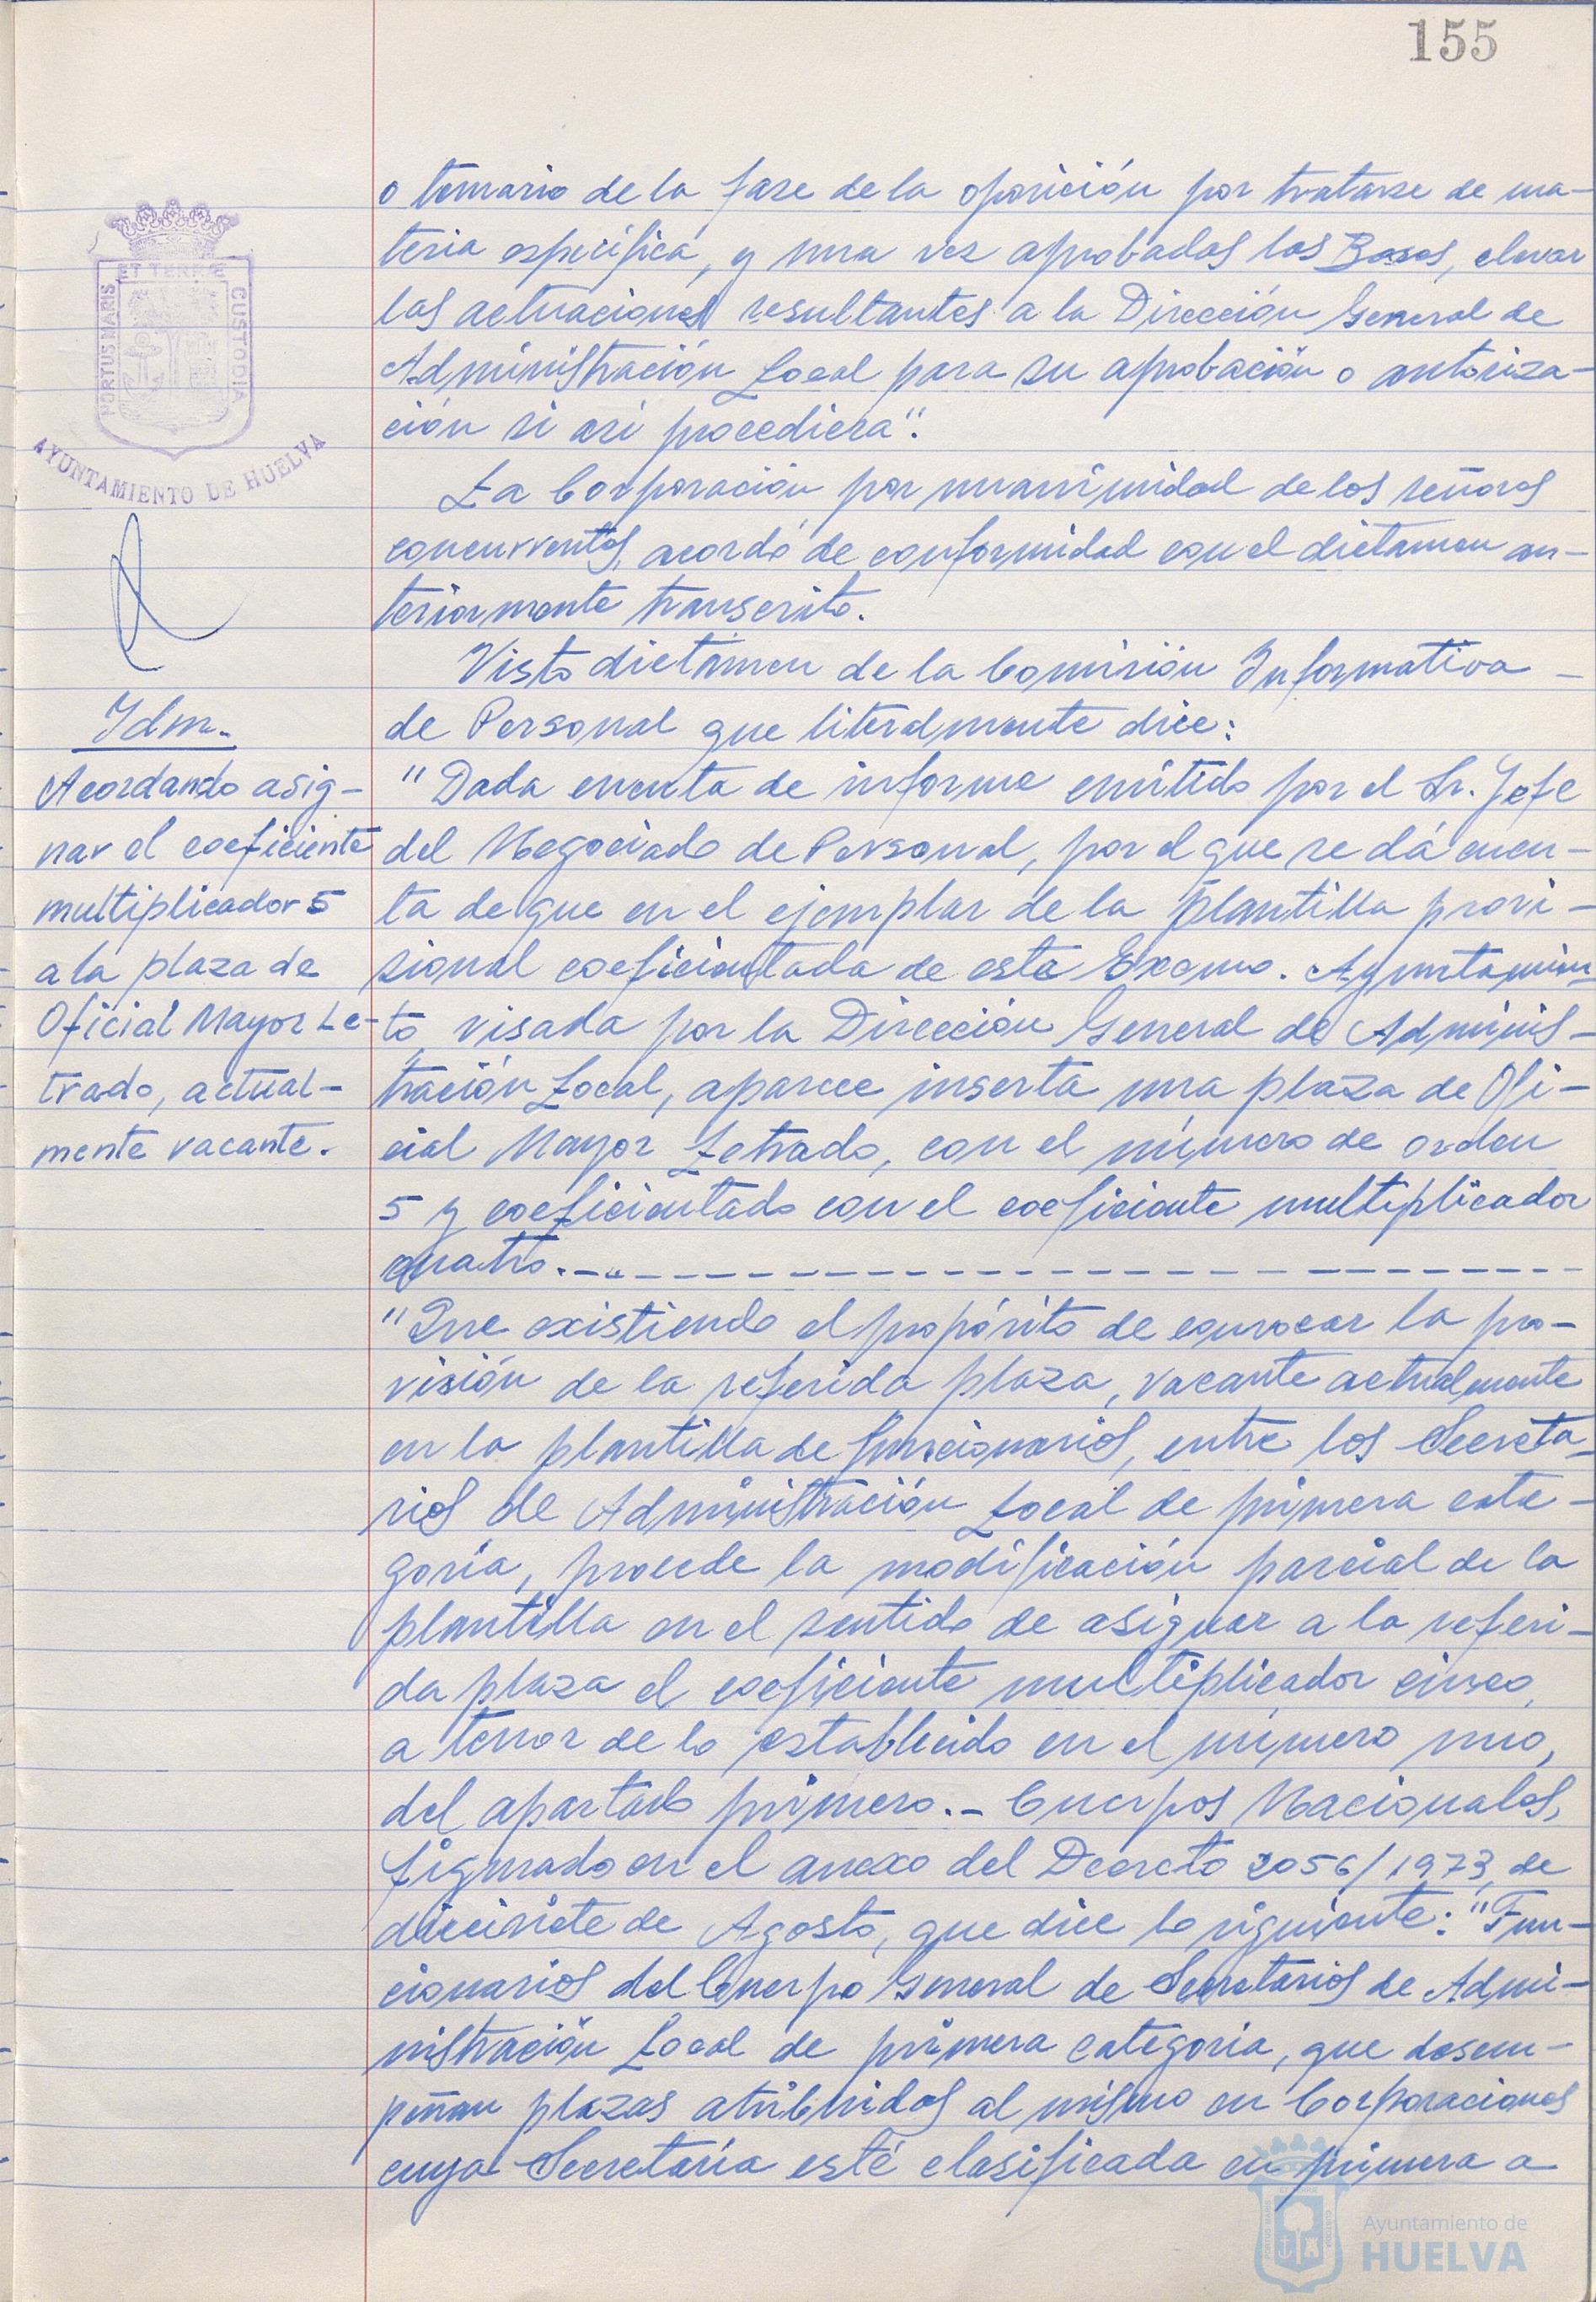 155
o temario de la fase de la oposición por tratarse de ma-
teria específica, y una vez aprobadas las Bases, elevar
las actuaciones resultantes a la Dirección General de
Administración Local para su aprobación o autoriza-
ción si así procediera".
La Corporación por unanimidad de los señores
concurrentes, acordó de conformidad con el dictamen an-
teriormente transcrito.
Visto dictámen de la Comisión Informativa -
de Personal que literalmente dice:
"Dada cuenta de informe emitido por el Sr. Jefe
del Negociado de Personal, por el que se dá cuen-
ta de que en el ejemplar de la plantilla provi-
sional coeficientada de este Excmo. Ayuntamien-
to, visada por la Dirección General de Adminis-
tración Local, aparece inserta una plaza de Ofi-
cial Mayor Letrado, con el número de orden
5 y coeficientado con el coeficiente multiplicador
cuatro.- - - - - - - - - - - - - - - - - - - -
"Que existiendo el propósito de convocar la pro-
visión de la referida plaza, vacante actualmente
en la plantilla de funcionarios, entre los Secreta-
rios de Administración Local de primera cate-
goría, procede la modificación parcial de la
plantilla en el sentido de asignar a la referi-
da plaza el coeficiente multiplicador cinco,
a tenor de lo establecido en el número uno,
del apartado primero.- Cuerpos Nacionales,
figurado en el anexo del Decreto 2056/1973, de
diecisiete de Agosto, que dice lo siguiente: "Fun-
cionarios del Cuerpo General de Secretarios de Admi-
nistración Local de primera categoría, que desem-
peñan plazas atribuidas al mismo en Corporaciones
cuya Secretaría esté clasificada en primera a
PORTUS MARIS ET TERRÆ CUSTODIA
AYUNTAMIENTO DE HUELVA
Idm.
Acordando asig-
nar el coeficiente
multiplicador 5
a la plaza de
Oficial Mayor Le-
trado, actual-
mente vacante.
Ayuntamiento de
HUELVA